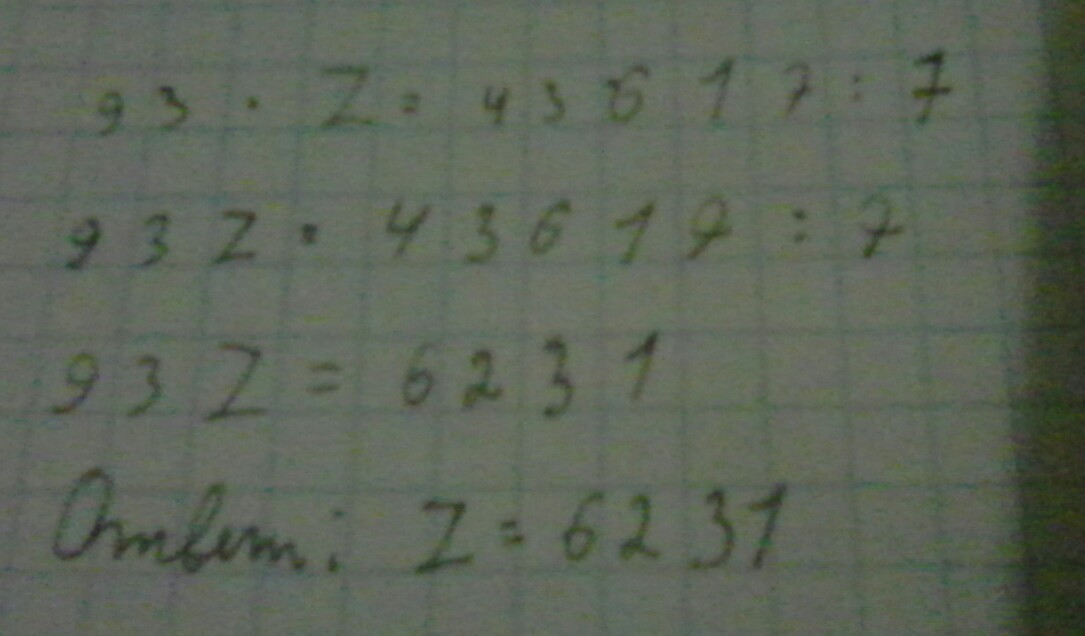 93 · Z = 43617 : 7
93Z = 43617 : 7
93Z = 6231
Ответ: Z = 6231